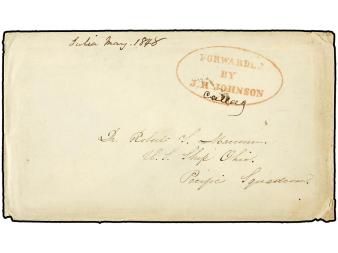 Julia May. 1848
FORWARDED
BY
J.H JOHNSON
Callao
Dr. Robert T.
U.S. Ship Ohio.
Pacific Squadron.